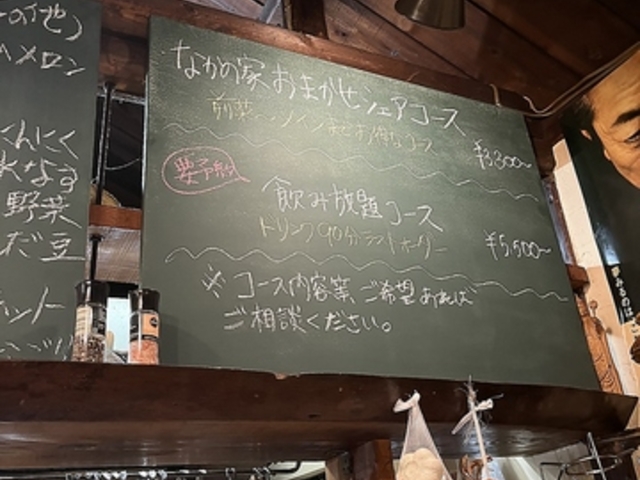 の他)
メロン
にんにく
水なす
野菜
だ豆
なかめ家おまかせシェアコース
前菜〜メインまでお得なコース
¥3,300〜
要予約
飲み放題コース
ドリンク90分ラストオーダー
¥5,500〜
※コース内容等ご希望あれば
ご相談ください。
夢みるのは